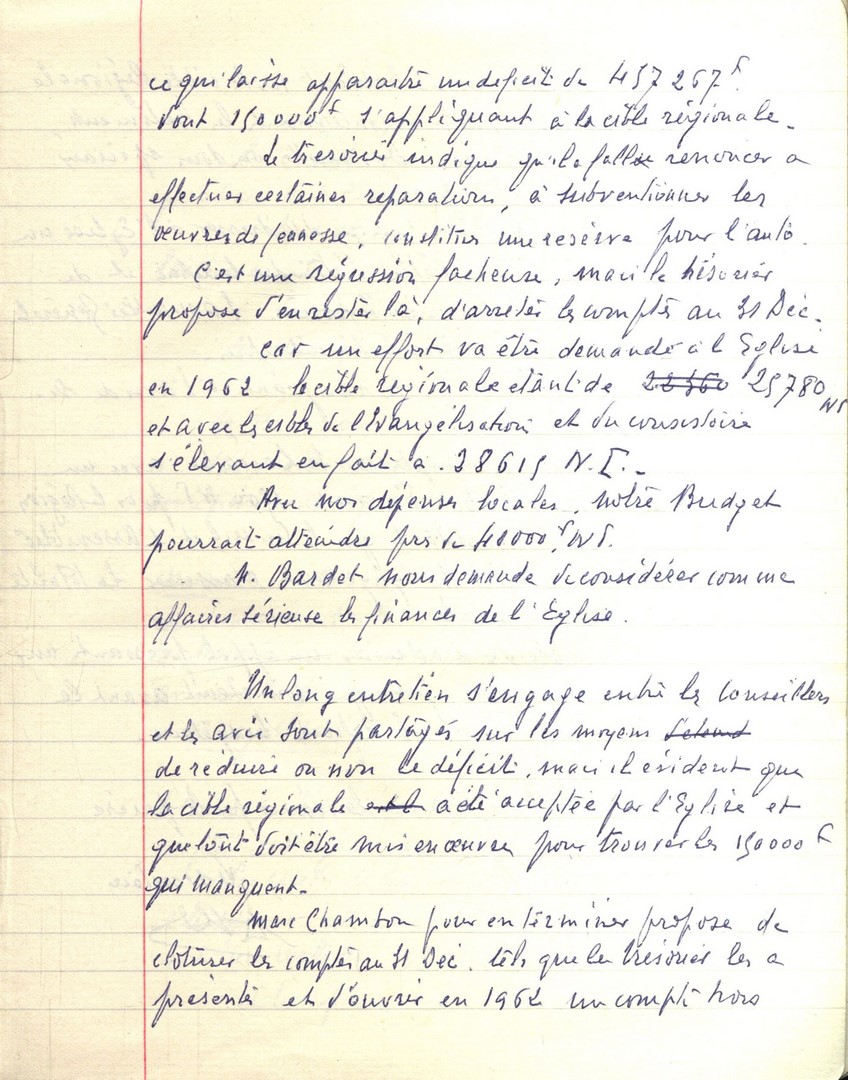 ce qui laisse apparaitre un deficit de 457 267 F.
dont 150000 F s'appliquant à la cible régionale.
Le tresorier indique qu'il a fallu renoncer a
effectuer certaines reparations, à subventionner les
oeuvres de jeunesse, constituer une reserve pour l'auto.
C'est une régression facheuse, mais le trésorier
propose d'en rester là, d'arreter les comptes au 31 Dec.
car un effort va être demandé à l'Eglise
en 1962 la cible régionale etant de 25780
NF
et avec les cibles de l'Evangélisation et du consistoire
s'élevant en fait a 28615 N.F.
Avec nos dépenses locales, notre Budget
pourrait atteindre près de 40000 NF.
M. Bardet nous demande de considérer comme
affaires sérieuse les finances de l'Eglise.
Un long entretien s'engage entre les conseillers
et les avis sont partagés sur les moyens
de réduire ou non le déficit, mais il est évident que
la cible régionale a été acceptée par l'Eglise et
que tout doit être mis en œuvre pour trouver les 150000 F
qui manquent.
Marc Chambon pour en terminer propose de
cloturer les comptes au 31 Dec. tels que le Trésorier les a
présentés et d'ouvrir en 1962 un compte hors